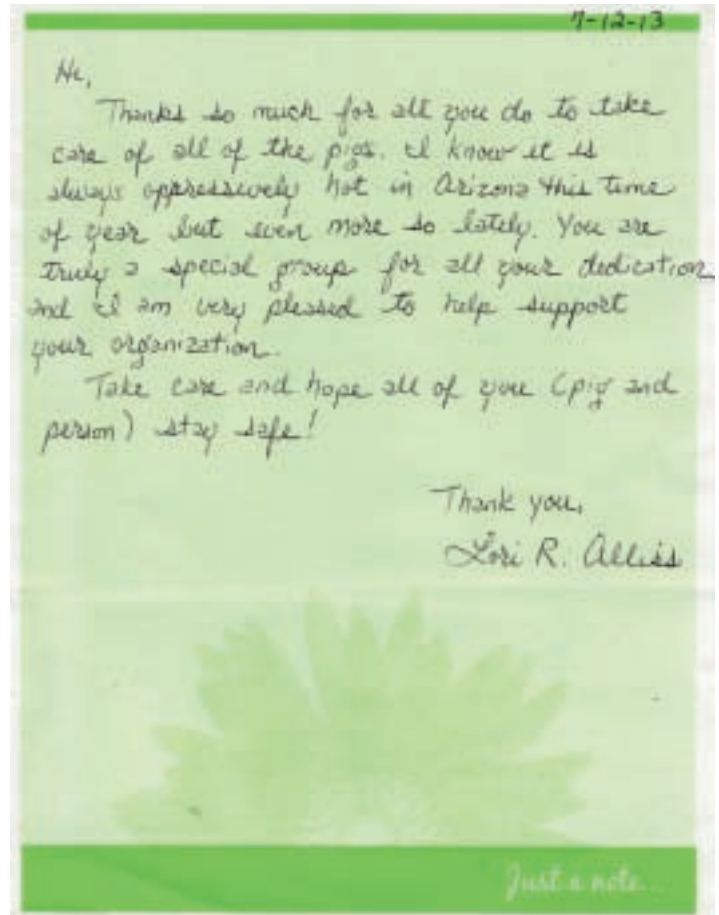 7-12-13
Hi,
Thanks so much for all you do to take
care of all of the pigs. I know it is
always oppressively hot in Arizona this time
of year but even more so lately. You are
truly a special group for all your dedication
and I am very pleased to help support
your organization.
Take care and hope all of you (pig and
person) stay safe!
Thank you,
Lori R. Alliss
Just a note...